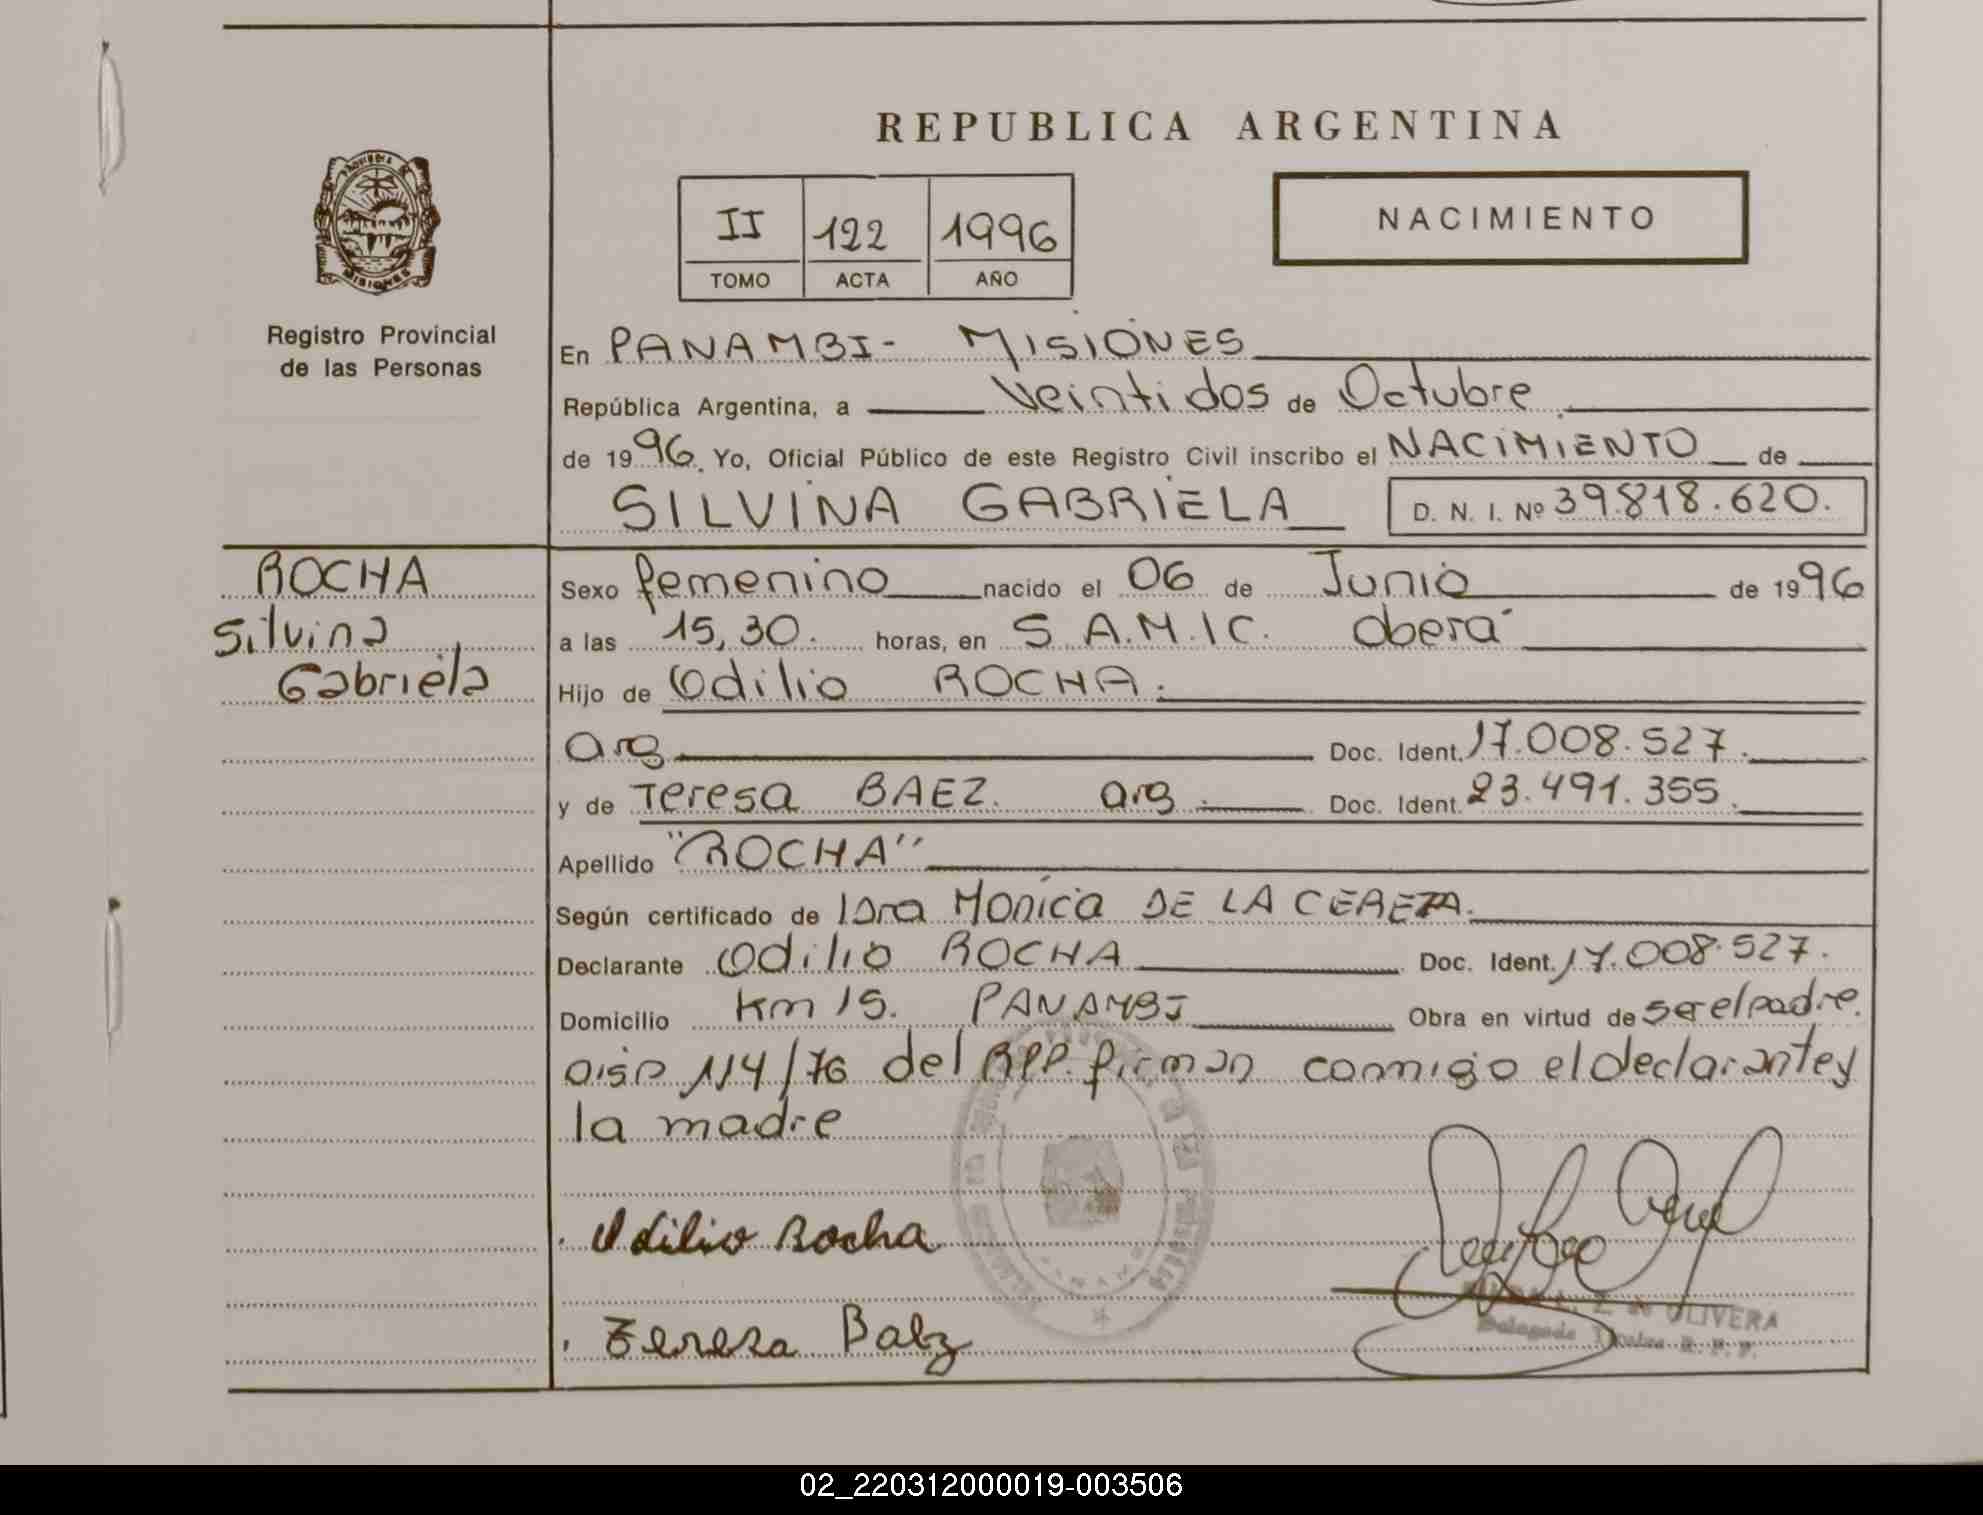 REPUBLICA ARGENTINA
PROVINCIA
MISIONES
Registro Provincial
de las Personas
II 122 1996
TOMO ACTA AÑO
NACIMIENTO
En PANAMBI- MISIONES
República Argentina, a Veintidos de Octubre
de 1996. Yo, Oficial Público de este Registro Civil inscribo el NACIMIENTO de
SILVINA GABRIELA D. N. I. Nº 39.818.620.
ROCHA
Silvina
Gabriela
Sexo femenino nacido el 06 de Junio de 1996
a las 15,30. horas, en S.A.M.I.C. Oberá
Hijo de Odilio ROCHA.
arg Doc. Ident. 17.008.527.
y de Teresa BAEZ. arg. Doc. Ident. 23.491.355.
Apellido "ROCHA"
Según certificado de Dra Monica DE LA
Declarante Odilio ROCHA Doc. Ident. 17.008.527.
Domicilio Km 15. PANAMBI Obra en virtud de ser el padre.
Disp 114/76 del RPP. firman conmigo el declarante y
la madre
Odilio Rocha
Teresa Baez
L. Z. de OLIVERA
Delegada Titular R. P. P.
02_220312000019-003506